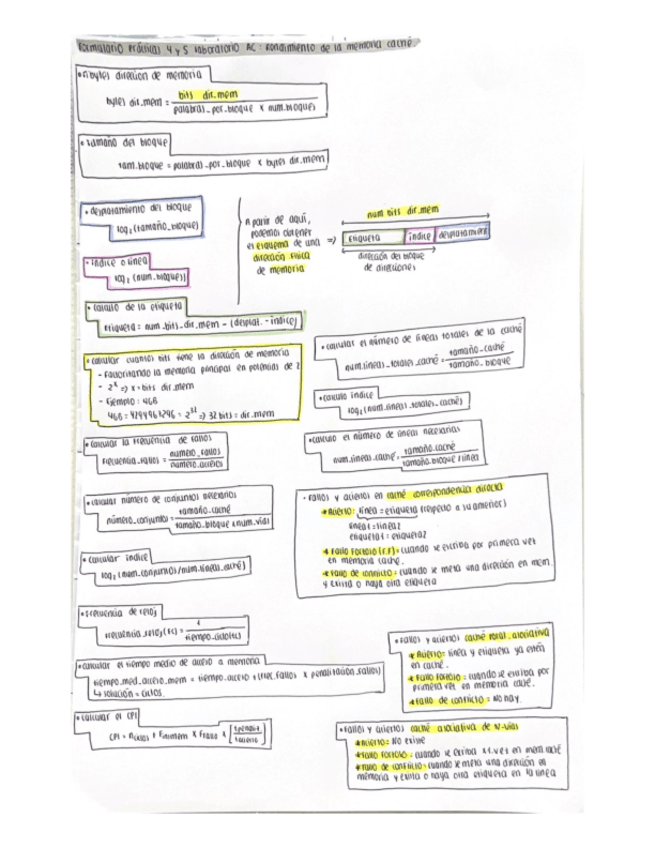 Formulario Prácticas 4 y 5 laboratorio AC: Rendimiento de la memoria caché
• nº bytes dirección de memoria
bytes dir_mem = bits dir_mem / palabras_por_bloque x num_bloques
• tamaño del bloque
tam_bloque = palabras_por_bloque x bytes dir_mem
• desplazamiento del bloque
log₂(tamaño_bloque)
• índice o línea
log₂(num_bloques)
A partir de aquí,
podemos obtener
el esquema de una
dirección física
de memoria
=>
num bits dir_mem
etiqueta índice desplazamiento
dirección del bloque
de direcciones
• cálculo de la etiqueta
etiqueta = num_bits_dir_mem - (desplaz. - índice)
• calcular cuantos bits tiene la dirección de memoria
- Factorizando la memoria principal en potencias de 2
- 2ˣ => x = bits dir_mem
- Ejemplo: 4GB
4GB = 4294967296 = 2³² => 32 bits = dir_mem
• calcular el número de líneas totales de la caché
num_lineas_totales_caché = tamaño_caché / tamaño_bloque
• cálculo índice
log₂(num_lineas_totales_caché)
• calcular la frecuencia de fallos
Frecuencia_fallos = número_fallos / número_accesos
• cálculo el número de líneas necesarias
num_lineas_caché = tamaño_caché / tamaño_bloque/línea
• calcular número de conjuntos necesarios
número_conjuntos = tamaño_caché / tamaño_bloque x num_vías
• calcular índice
log₂(num_conjuntos/num_lineas_caché)
• Fallos y aciertos en caché correspondencia directa
* Acierto: línea = etiqueta (respecto a su anterior)
línea1 = línea2
etiqueta1 = etiqueta2
* Fallo forzoso (F.F): cuando se escriba por primera vez
en memoria caché.
* Fallo de conflicto: cuando se meta una dirección en mem
y exista o haya otra etiqueta
• Frecuencia de reloj
Frecuencia_reloj(FC) = 1 / tiempo_ciclo(tc)
• calcular el tiempo medio de acceso a memoria
tiempo_med_acceso_mem = tiempo_acceso + (frec_fallos x penalización_fallos)
↳ solución = ciclos.
• calcular el CPI
• Fallos y aciertos caché total_asociativa
* Acierto: línea y etiqueta ya estén
en caché.
* Fallo forzoso: cuando se escriba por
primera vez en memoria caché.
* Fallo de conflicto: No hay.
• Fallos y aciertos caché asociativa de N-vías
* Acierto: No existe
* Fallo forzoso: cuando se escriba x1.vez en mem caché
* Fallo de conflicto: cuando se meta una dirección en
memoria y exista o haya otra etiqueta en la línea